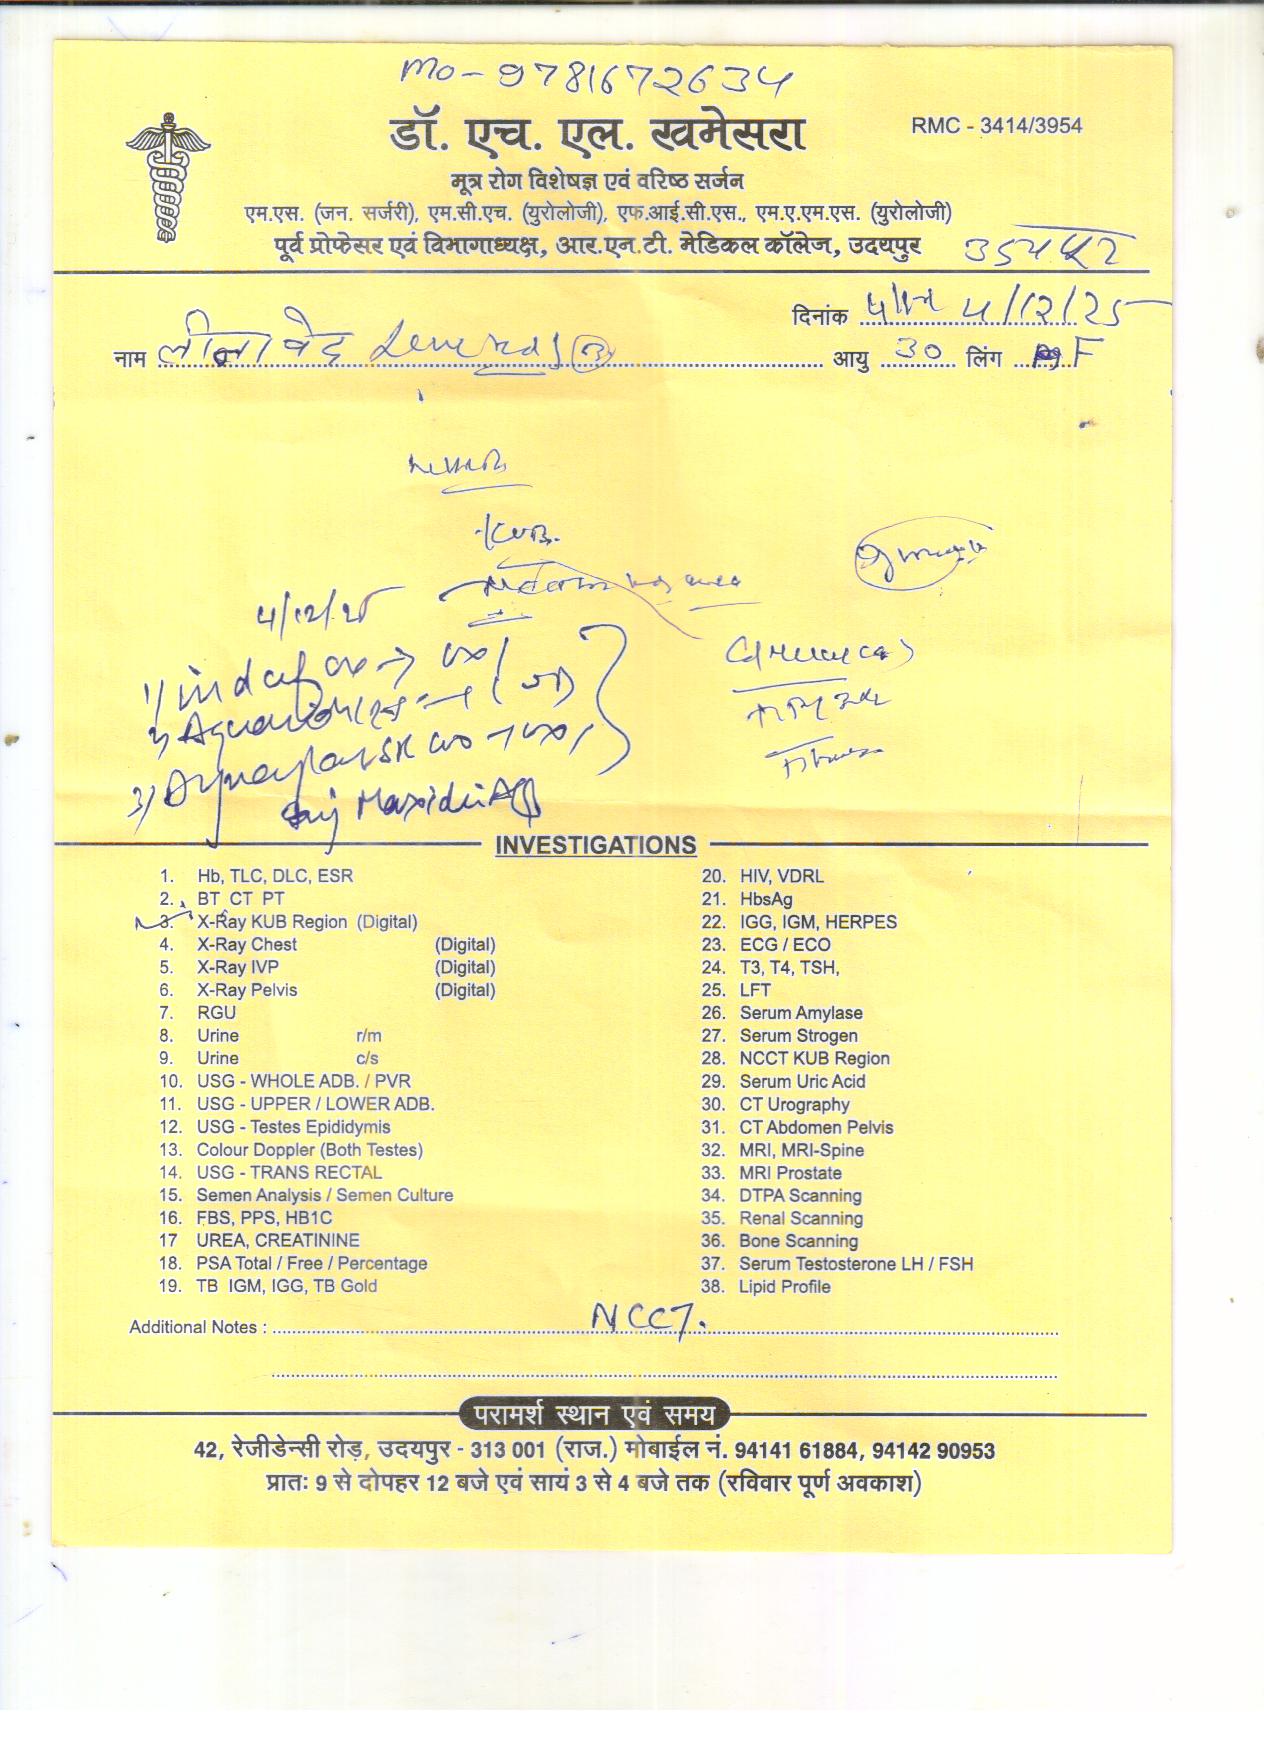 Mo - 9781672634
डॉ. एच. एल. खमेसरा
RMC - 3414/3954
मूत्र रोग विशेषज्ञ एवं वरिष्ठ सर्जन
एम.एस. (जन. सर्जरी), एम.सी.एच. (यूरोलोजी), एफ.आई.सी.एस., एम.ए.एम.एस. (यूरोलोजी)
पूर्व प्रोफेसर एवं विभागाध्यक्ष, आर.एन.टी. मेडिकल कॉलेज, उदयपुर
उदयपुर
दिनांक 4/12/25
नाम लीला आयु 30 लिंग F
KUB.
4/12/25
1)
2)
3)
INVESTIGATIONS
1. Hb, TLC, DLC, ESR
2. BT CT PT
3. X-Ray KUB Region (Digital)
4. X-Ray Chest (Digital)
5. X-Ray IVP (Digital)
6. X-Ray Pelvis (Digital)
7. RGU
8. Urine r/m
9. Urine c/s
10. USG - WHOLE ADB. / PVR
11. USG - UPPER / LOWER ADB.
12. USG - Testes Epididymis
13. Colour Doppler (Both Testes)
14. USG - TRANS RECTAL
15. Semen Analysis / Semen Culture
16. FBS, PPS, HB1C
17 UREA, CREATININE
18. PSA Total / Free / Percentage
19. TB IGM, IGG, TB Gold
20. HIV, VDRL
21. HbsAg
22. IGG, IGM, HERPES
23. ECG / ECO
24. T3, T4, TSH,
25. LFT
26. Serum Amylase
27. Serum Strogen
28. NCCT KUB Region
29. Serum Uric Acid
30. CT Urography
31. CT Abdomen Pelvis
32. MRI, MRI-Spine
33. MRI Prostate
34. DTPA Scanning
35. Renal Scanning
36. Bone Scanning
37. Serum Testosterone LH / FSH
38. Lipid Profile
Additional Notes : NCCT.
परामर्श स्थान एवं समय
42, रेजीडेन्सी रोड़, उदयपुर - 313 001 (राज.) मोबाईल नं. 94141 61884, 94142 90953
प्रातः 9 से दोपहर 12 बजे एवं सायं 3 से 4 बजे तक (रविवार पूर्ण अवकाश)